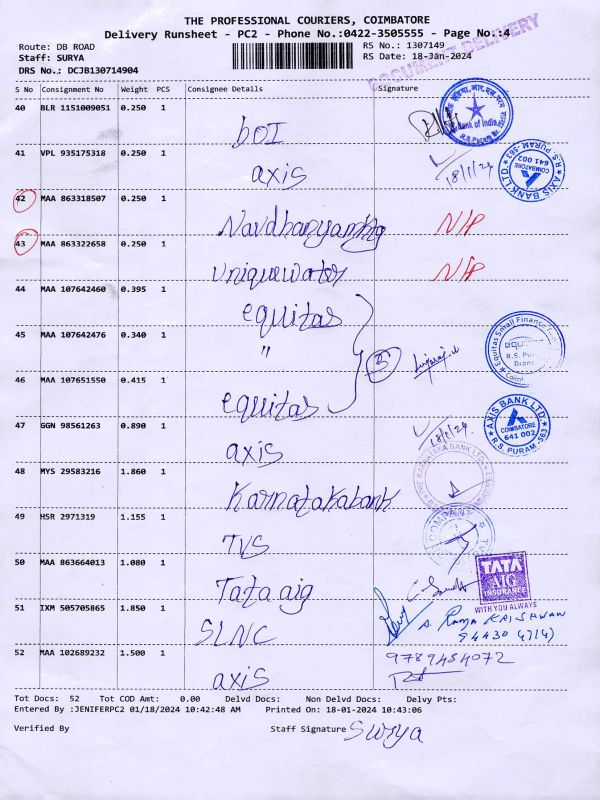 THE PROFESSIONAL COURIERS, COIMBATORE
Delivery Runsheet - PC2 - Phone No.:0422-3505555 - Page No.:4
DOCUMENT DELIVERY
Route: DB ROAD RS No.: 1307149
Staff: SURYA RS Date: 18-Jan-2024
DRS No.: DCJB130714904
S No Consignment No Weight PCS Consignee Details Signature
40 BLR 1151009051 0.250 1 BOI
Bank of India
R.S. Puram Br.
41 VPL 935175318 0.250 1 axis 18/1/24
AXIS BANK LTD. COIMBATORE 641 002 R.S. PURAM,-563
42 MAA 863318507 0.250 1 Navdhanyam N/P
43 MAA 863322658 0.250 1 uniquewater N/P
44 MAA 107642460 0.395 1 equitas
45 MAA 107642476 0.340 1 "
Equitas Small Finance
R.S. Pu
Bran
46 MAA 107651550 0.415 1 equitas
47 GGN 98561263 0.890 1 axis 18/1/24
AXIS BANK LTD. COIMBATORE 641 002 R.S. PURAM,-563
48 MYS 29583216 1.860 1 Karnatakabank
KARNATAKA BANK LTD
49 HSR 2971319 1.155 1 TVS
50 MAA 863664013 1.080 1 Tata aig
TATA
AIG
INSURANCE
WITH YOU ALWAYS
51 IXM 505705865 1.850 1 SLNC
52 MAA 102689232 1.500 1 axis 9789484072
Tot Docs: 52 Tot COD Amt: 0.00 Delvd Docs: Non Delvd Docs: Delvy Pts:
Entered By :JENIFERPC2 01/18/2024 10:42:48 AM Printed On: 18-01-2024 10:43:06
Verified By Staff Signature Surya